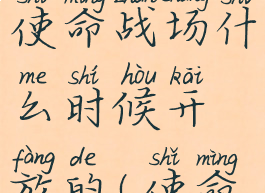 shǐ mìng zhàn chǎng shí
使命战场什
me shí hòu kāi
么时候开
fàng de shǐ mìng
放的(使命